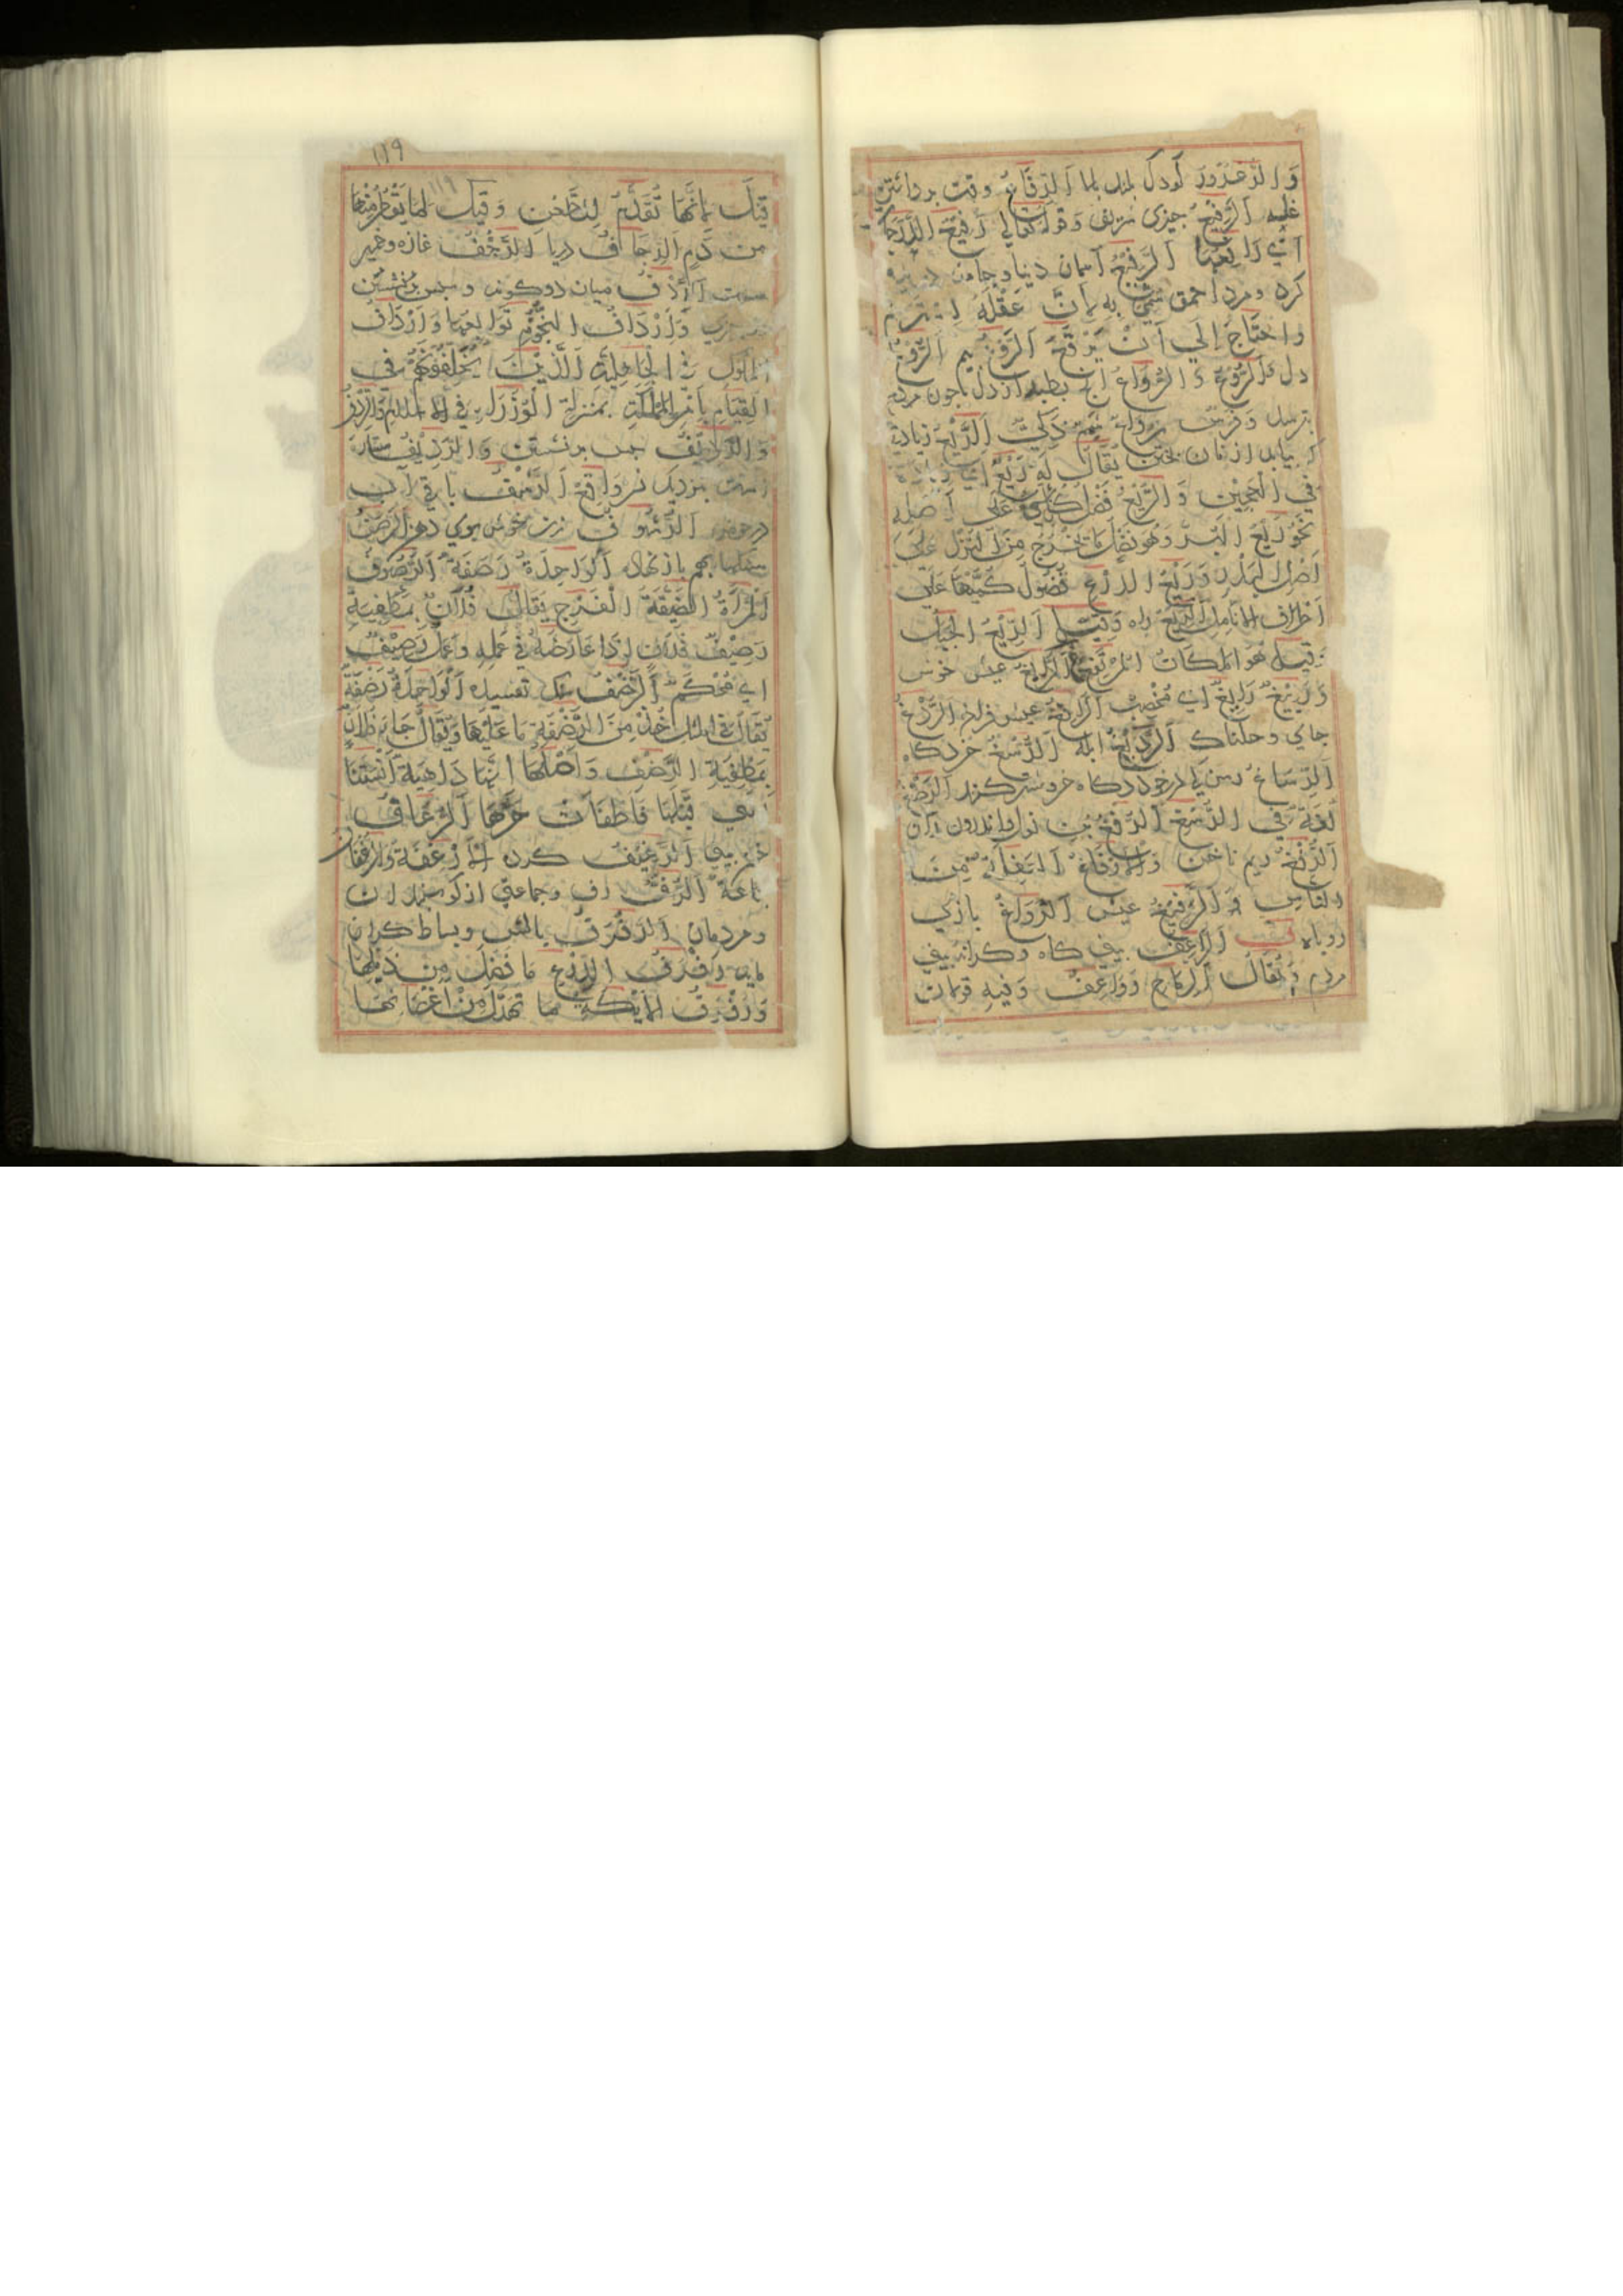 وَالزَّعْزُوزَ كودك اَلرِّفَاعُ وقت برداشتن
غله اَلرَّفِيعُ چيزى شريف وَقوله تعالي رَفِيعُ الدَّرَجَاتِ
اَيْ رَافِعُهَا اَلرَّقِيعُ آسمان دنيا وجامه
كرده ومرد احمق سُمِّيَ بِهِ لِاَنَّ عَقْلَهُ
وَاحْتَاجَ اِلَي اَنْ يُرْقَعَ اَلرَّوْعُ بيم اَلرُّوعُ
دل وَالرُّوعَةُ وَالرُّوَاعُ آنچ بطبد از دل چون مردم
بترسد وَفَرَسٌ رُوَاعٌ ذَكِيٌّ اَلرَّيْعُ زيادتي
كه يابد از نان پختن يُقَالُ لَهُ رَيْعٌ
فِي الْعَجِيْنِ وَالرَّيْعُ فَضْلُ كُلِّ شَيْءٍ عَلَى اَصْلِهِ
نَحْوُ رَيْعِ الْبُرِّ وَهُوَ فَضْلُ مَا يَخْرُجُ مِنَ النُّزْلِ عَلَيَ
اَصْلِ الْبَذْرِ وَرَيْعُ الدِّرْعِ فُضُولُ كُمَّيْهَا عَلَي
اَطْرَافِ الاَنَامِلِ اَلرِّيْعُ راه وَقِيْلَ اَلرِّيْعُ الْجَبَلُ
وَقيل هُوَ الْمَكَانُ الْمُرْتَفِعُ غ اَلرَّابِغُ عيش خوش
وَرَبِيْغٌ رَابِغٌ اي مُخْصِبٌ اَلرَّافِغُ عيش فراخ اَلرَّدْغُ
جاي وحلناك اَلرَّدِيْغُ ابله اَلرُّسْغُ خردكاه
اَلرِّسَاغُ رسن كه بر خردكاه خر وشتر كنند اَلرُّصْغُ
لُغَةٌ فِي الرُّسْغِ اَلرُّفْغُ بن ران واندرون
اَلرُّفْغُ ريم ناخن وَالْاَرْفَاغُ اَلسَّفِلَةُ مِنَ
النَّاسِ وَالرَّفِيْغُ عيش اَلرَّوَاغُ بازي
روباه ف اَلرَّاعِفُ بيني كاه وكرانه بيني
مردم وَيُقَالُ اَلرِّمَاحُ رَوَاعِفُ وَفيهِ قولان
١١٩
قِيْلَ لِاَنَّهَا تُقَدَّمُ لِلطَّعْنِ وَقِيْلَ لِمَا يَقْطُرُ مِنْهَا
مِنَ دَمٍ اَلرَّجَّافُ دريا اَلرَّخْفُ غازه وخمير
سست اَلرِّدْفُ ميان دو كون وسپس برنشستن
وَاَرْدَافُ النُّجُوْمِ تَوَالِيْهَا وَاَرْدَافُ
الْمُلُوْكِ فِي الْجَاهِلِيَّةِ اَلَّذِيْنَ يَخْلُفُوْنَهُمْ فِي
الْقِيَامِ بِاَمْرِ الْمَمْلَكَةِ بِمَنْزِلَةِ الْوُزَرَاءِ فِي الاسلام وَالرِّدْفُ
وَالرَّدِيْفُ سپس برنشستن وَالرَّدِيْفُ ستاره
است نزديك نسر وَاقِع اَلرَّشْفُ باقي آب
در حوض اَلرَّشُوْفُ زن خوش بوي دهن اَلرَّصَفُ
سنكها بهم باز نهاده اَلْوَاحِدَةُ رَصَفَةٌ اَلرَّصُوْفُ
اَلْمَرْأَةُ الضَّيِّقَةُ الْفَرْجِ يُقَالُ فُلَانٌ
رَصِيْفُ فُلَانٍ اِذَا عَارَضَهُ فِي عَمَلِهِ وَعَمَلٌ رَصِيْفٌ
اي مُحْكَمٌ اَلرَّضْفُ سنك تفسيده اَلْوَاحِدَةُ رَضْفَةٌ
يُقَالُ فِي الْمَثَلِ خُذْ مِنَ الرَّضْفَةِ مَا عَلَيْهَا وَيُقَالُ جَاءَ فُلَانٌ
بِمُطْفِيَةِ الرَّضْفِ وَاَصْلُهَا اَنَّهَا دَاهِيَةٌ اَنْسَتْنَا
اَلَّتِي قَبْلَهَا فَاَطْفَأَتْ حَرَّهَا اَلرُّعَافُ
خون بيني اَلرَّغِيْفُ كرده اَلْاَرْغِفَةُ وَالرُّغْفَانُ
جَمَاعَةٌ اَلرَّفُّ رف وجماعتي از كوسپندان
ومردمان اَلرَّفْرَفُ بالش وبساط
رَفْرَفُ الدِّرْعِ مَا فَضَلَ مِنْ ذَيْلِهَا
وَرَفْرَفُ الْاَيْكَةِ مَا تَهَدَّلَ مِنْ اَغْصَانِهَا